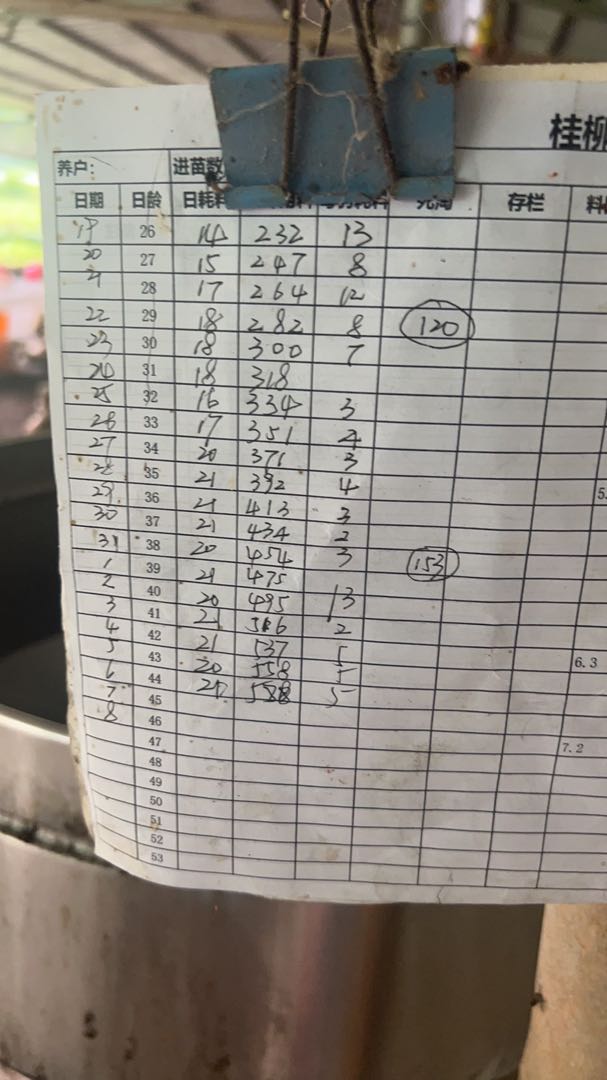 桂柳
养户： 进苗数
日期 日龄 日耗料 存栏 料
26 14 232 13
20 27 15 247 8
21 28 17 264 12
22 29 18 282 8 120
23 30 18 300 7
24 31 18 318
25 32 16 334 3
26 33 17 351
27 34 20 371 3
28 35 21 392 4 5.
29 36 21 413 3
30 37 21 434 2
31 38 20 454 3 153
1 39 21 475
2 40 20 495 13
3 41 2
4 42 21 537 5
5 43 20 558 5 6.3
6 44 5
7 45
8 46
47 7.2
48
49
50
51
52
53